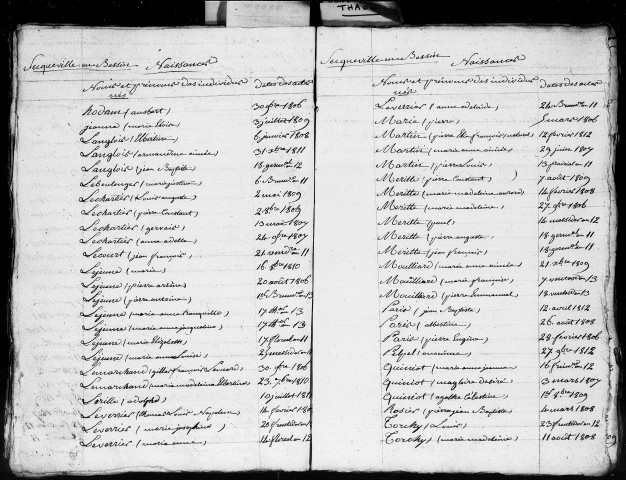 Secqueville en Bessin Naissances
Noms et prénoms des individus Dates des actes
nés
hodam (ausbert) 30 9bre 1806
jeanne (marie 3 juillet 1809
Langlois ( 6 janvier 1808
Langlois (armantine aimée) 31 xbre 1811
Langlois (jean Baptiste) 18 germinal 12
Leboulenger (marie justine) 6 Brum. an 11
Lechartier (Louis auguste) 2 mai 1809
Lechartier (pierre Constant) 2 8bre 1806
Lechartier (gervais) 13 mai 1807
Lechartier (anne adèle) 24 9bre 1807
Lecourt (jean françois) 21 vendre. an 11
Lejeune (marie) 16 8bre 1810
Lejeune (pierre arsène) 20 août 1806
Lejeune (pierre antoine) 1er Brum. an 13
Lejeune (marie anne tranquille) 17 13
Lejeune (marie anne jacqueline) 17 13
Lejeune (marie Elizabeth) 17 floreal an 11
Lejeune (marie anne 25 messidor an 11
Lemarchand (gilles françois Léonard) 30 9bre 1806
Lemarchand (marie madeleine 23 1810
(adolphe) 10 juillet 1811
Leverrier (thomas Louis Napoleon) 14 fevrier
Leverrier (marie josephine) 20 fructidor an 12
Leverrier (marie anne) 14 floreal an 12
Secqueville en Bessin Naissances
Noms et prénoms des individus Dates des actes
nés
Leverrier (anne adelaide) 26 Brum. an 11
Marie (pierre) 5 mars 1806
Martin (pierre françois 12 fevrier 1812
Martin (marie anne aimée) 29 juin 1807
Martin (pierre Louis) 13 prairial an 11
Meritte (pierre Constant) 7 août 1809
Meritte (marie madeleine aurore) 14 fevrier 1808
Meritte (marie madeleine) 27 9bre 1806
Meritte (paul) 14 messidor an 12
Meritte (pierre auguste) 18 germ. an 11
Meritte (jean françois) 18 germ. an 11
Mouilliard (marie anne aimée) 21 xbre 1809
Mouilliard (marie françois) 7 ventose an 13
Mouilliard (pierre Emmanuel) 18 ventose an 13
Paris (jean Baptiste) 12 avril 1812
Paris (albertine) 26 août 1808
Paris (pierre Eugène) 28 fevrier 1806
Peljel (anonime) 27 9bre 1812
Quiriot (marie anne jeanne) 16 frim. an 12
Quiriot (magloire desiré) 3 mars 1807
Quiriot (agathe Celestine) 1er 8bre 1809
Rosier (pierre jean Baptiste) 4 mars 1808
Torchy (Louis) 23 fructidor an 12
Torchy (marie madeleine) 11 août 1808